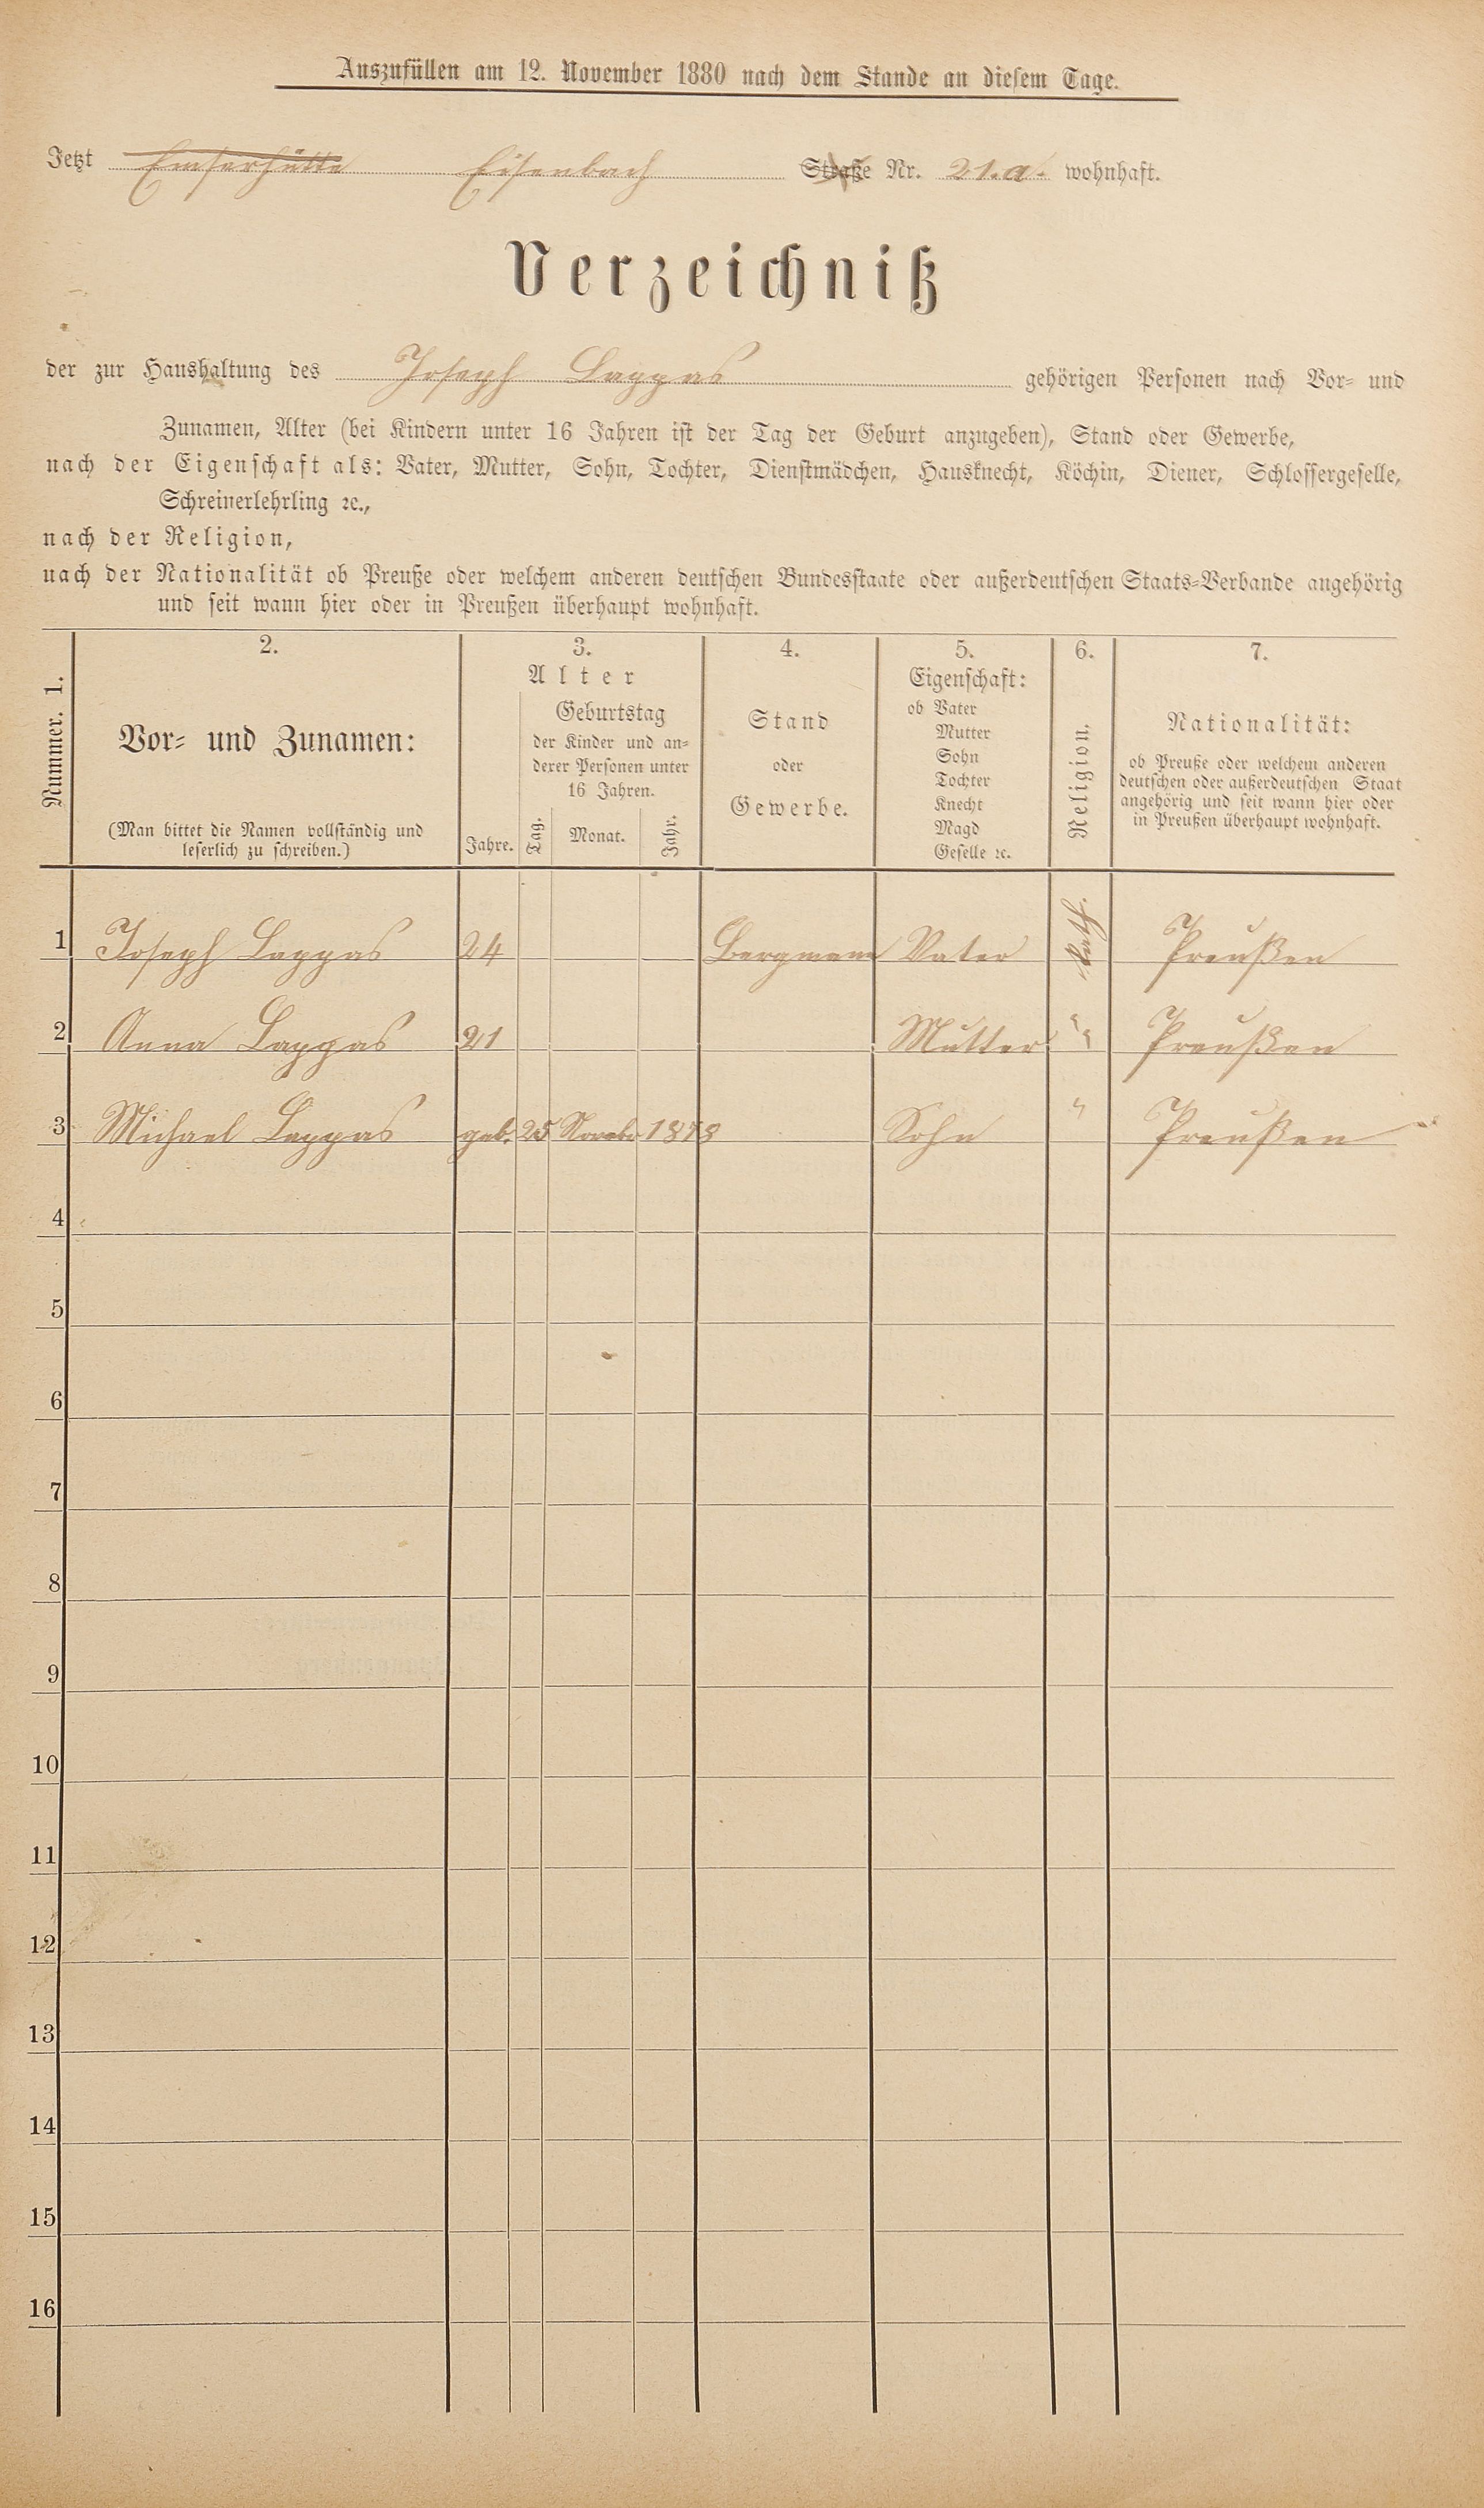 Auszufüllen am 12. November 1880 nach dem Stande an dieſem Tage.
Jetzt Emserhütte Eisenbach Straße Nr. 21.a. wohnhaft.
Verzeichniß
der zur Haushaltung des Joseph Lappas gehörigen Perſonen nach Vor- und
Zunamen, Alter (bei Kindern unter 16 Jahren iſt der Tag der Geburt anzugeben), Stand oder Gewerbe,
nach der Eigenſchaft als: Vater, Mutter, Sohn, Tochter, Dienſtmädchen, Hausknecht, Köchin, Diener, Schloſſergeſelle,
Schreinerlehrling ꝛc.,
nach der Religion,
nach der Nationalität ob Preuße oder welchem anderen deutſchen Bundesſtaate oder außerdeutſchen Staats-Verbande angehörig
und ſeit wann hier oder in Preußen überhaupt wohnhaft.
Nummer. 1.
2.
Vor- und Zunamen:
(Man bittet die Namen vollſtändig und
leſerlich zu ſchreiben.)
3.
Alter
Geburtstag
der Kinder und an-
derer Perſonen unter
16 Jahren.
Jahre. Tag. Monat. Jahr.
4.
Stand
oder
Gewerbe.
5.
Eigenſchaft:
ob Vater
Mutter
Sohn
Tochter
Knecht
Magd
Geſelle ꝛc.
6.
Religion.
7.
Nationalität:
ob Preuße oder welchem anderen
deutſchen oder außerdeutſchen Staat
angehörig und ſeit wann hier oder
in Preußen überhaupt wohnhaft.
1 Joseph Lappas 24 Bergmann Vater kath. Preußen
2 Anna Lappas 21 Mutter " Preußen
3 Michael Lappas geb. 25 Novebr 1878 Sohn " Preußen
4
5
6
7
8
9
10
11
12
13
14
15
16